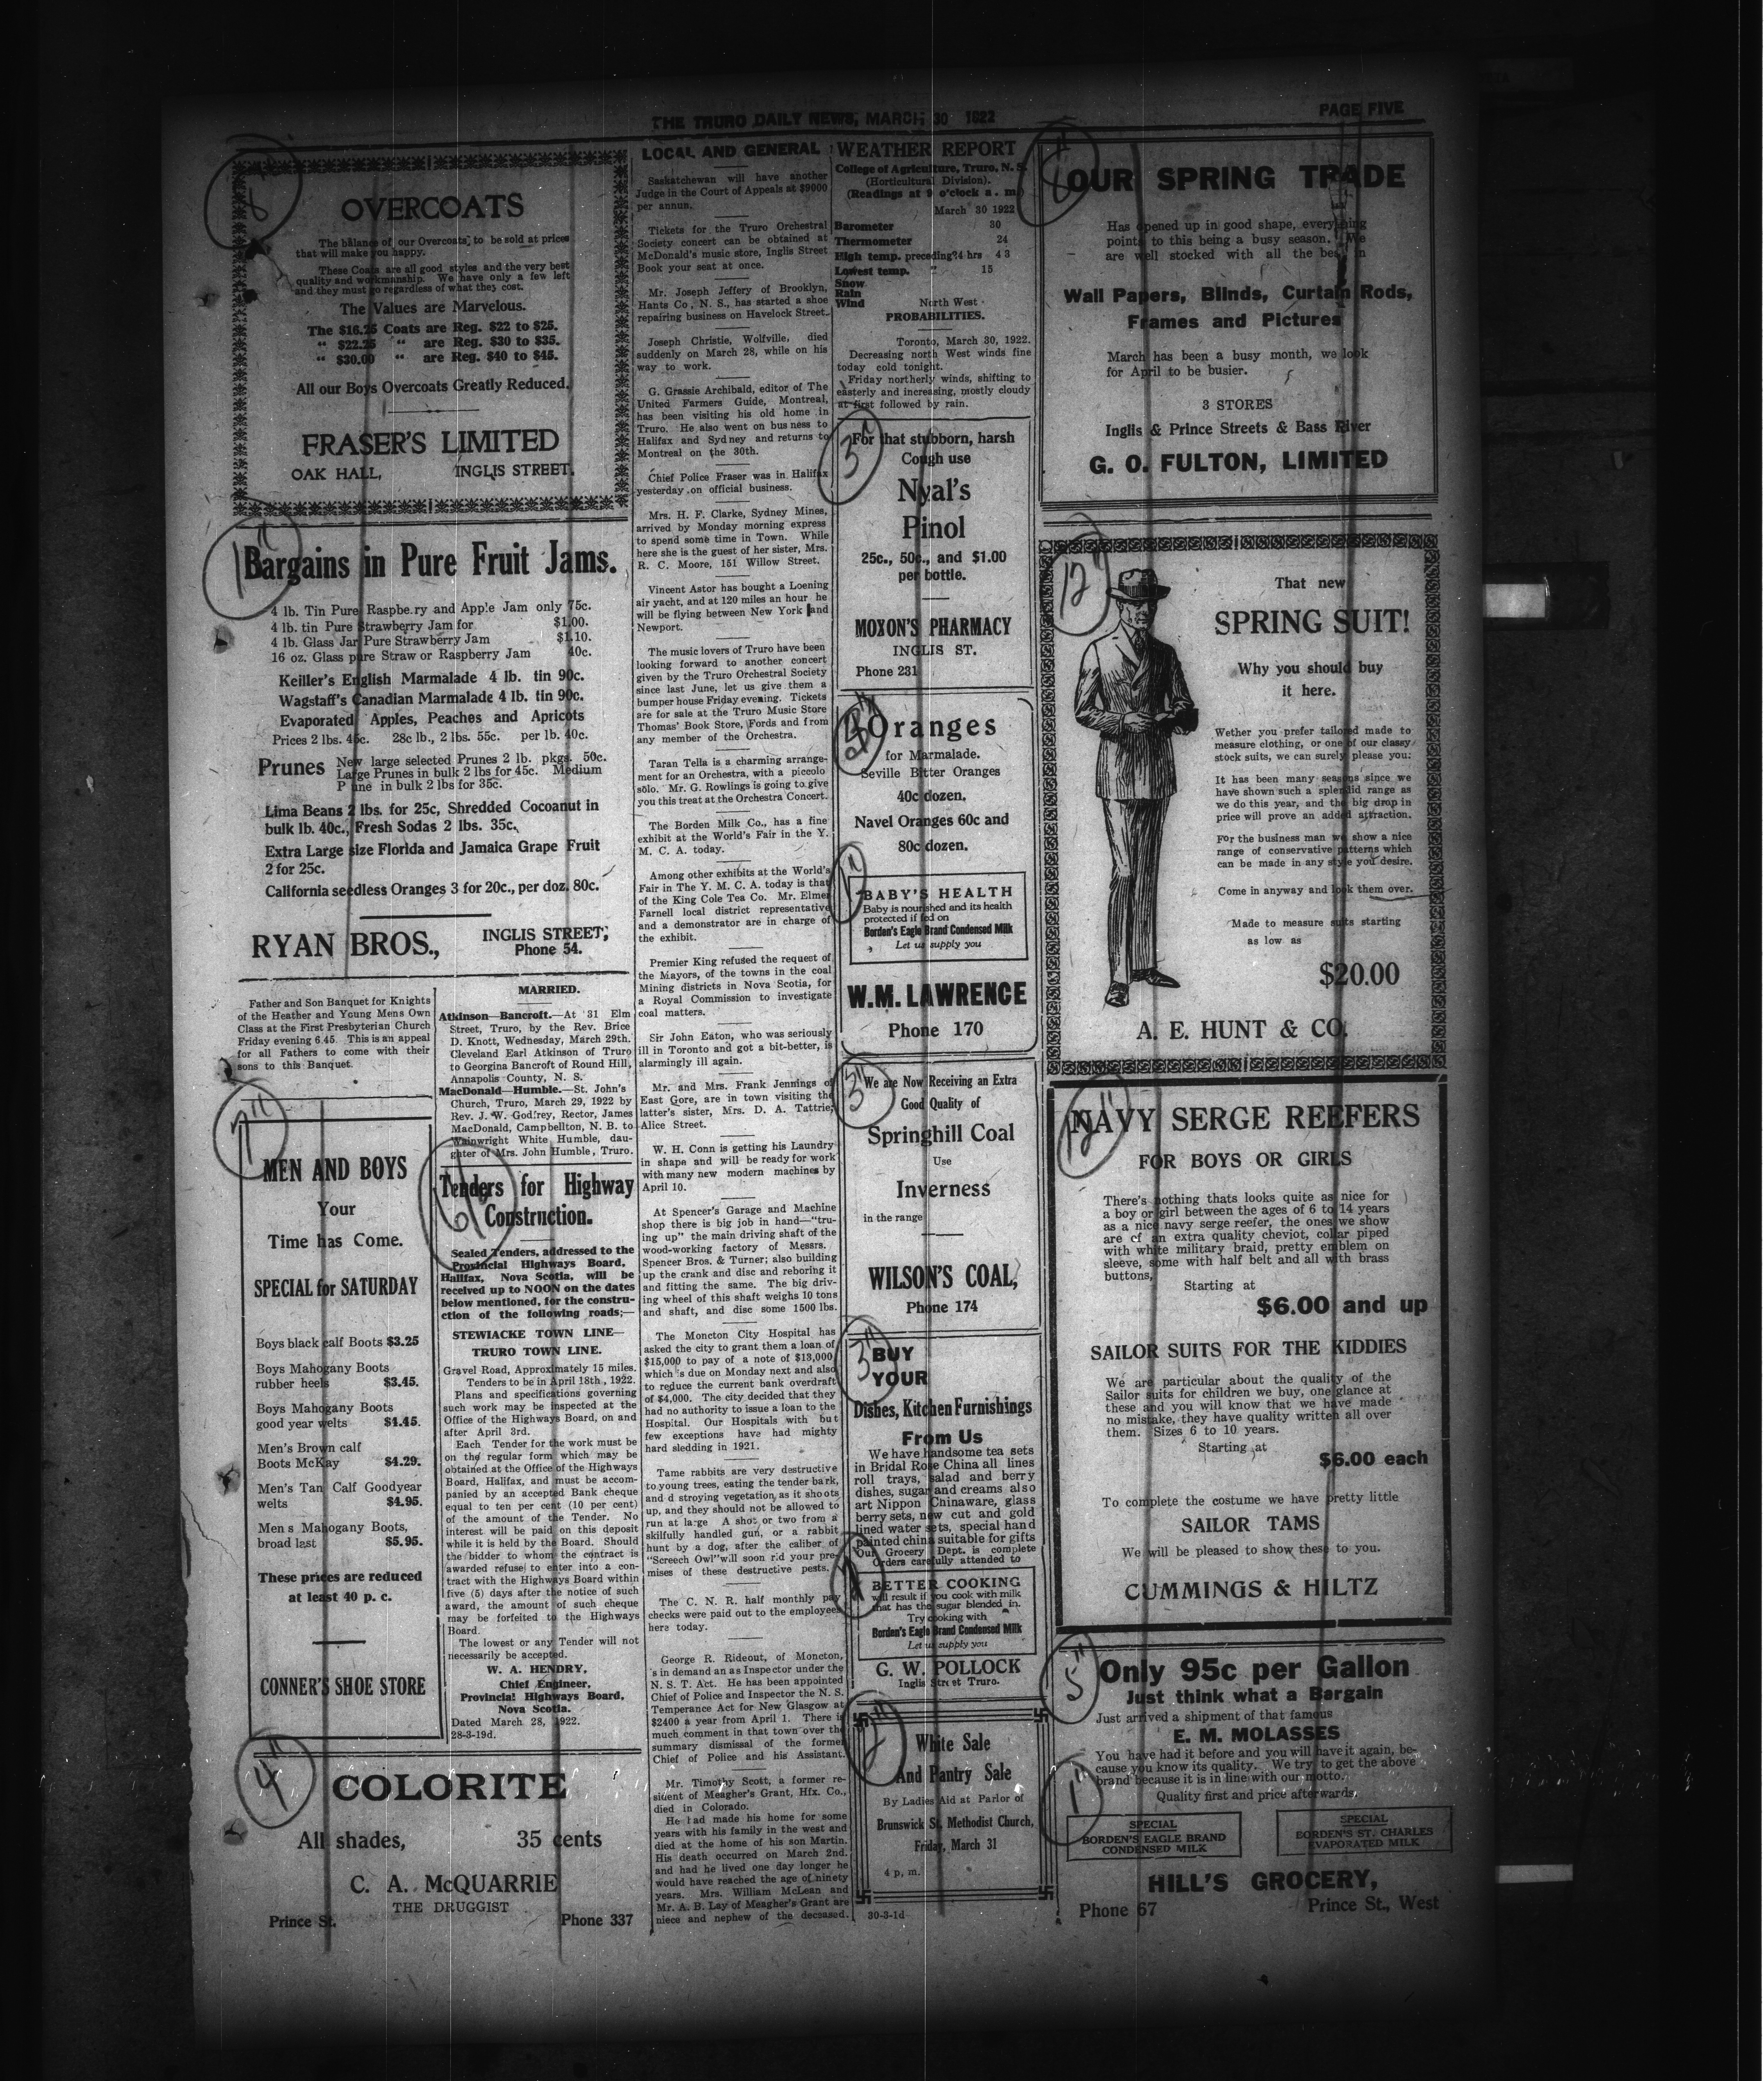 THE TRURO DAILY NEWS, MARCH 30 1922
PAGE FIVE
8"
OVERCOATS
The balance of our Overcoats to be sold at prices
that will make you happy.
These Coats are all good styles and the very best
quality and workmanship. We have only a few left
and they must go regardless of what they cost.
The Values are Marvelous.
The $16.25 Coats are Reg. $22 to $25.
" $22.25 " are Reg. $30 to $35.
" $30.00 " are Reg. $40 to $45.
All our Boys Overcoats Greatly Reduced.
FRASER'S LIMITED
OAK HALL, INGLIS STREET.
11"
Bargains in Pure Fruit Jams.
4 lb. Tin Pure Raspbe.ry and Apple Jam only 75c.
4 lb. tin Pure Strawberry Jam for $1.00.
4 lb. Glass Jar Pure Strawberry Jam $1.10.
16 oz. Glass pure Straw or Raspberry Jam 40c.
Keiller's English Marmalade 4 lb. tin 90c.
Wagstaff's Canadian Marmalade 4 lb. tin 90c.
Evaporated Apples, Peaches and Apricots
Prices 2 lbs. 45c. 28c lb., 2 lbs. 55c. per lb. 40c.
Prunes New large selected Prunes 2 lb. pkgs. 50c.
Large Prunes in bulk 2 lbs for 45c. Medium
P une in bulk 2 lbs for 35c.
Lima Beans 2 lbs. for 25c, Shredded Cocoanut in
bulk lb. 40c., Fresh Sodas 2 lbs. 35c.
Extra Large size Florida and Jamaica Grape Fruit
2 for 25c.
California seedless Oranges 3 for 20c., per doz. 80c.
RYAN BROS., INGLIS STREET,
Phone 54.
Father and Son Banquet for Knights
of the Heather and Young Mens Own
Class at the First Presbyterian Church
Friday evening 6.45. This is an appeal
for all Fathers to come with their
sons to this Banquet.
7"
MEN AND BOYS
Your
Time has Come.
SPECIAL for SATURDAY
Boys black calf Boots $3.25
Boys Mahogany Boots
rubber heels $3.45.
Boys Mahogany Boots
good year welts $4.45.
Men's Brown calf
Boots McKay $4.29.
Men's Tan Calf Goodyear
welts $4.95.
Men s Mahogany Boots,
broad last $5.95.
These prices are reduced
at least 40 p. c.
CONNER'S SHOE STORE
MARRIED.
Atkinson—Bancroft.—At 31 Elm
Street, Truro, by the Rev. Brice
D. Knott, Wednesday, March 29th.
Cleveland Earl Atkinson of Truro
to Georgina Bancroft of Round Hill,
Annapolis County, N. S.
MacDonald—Humble.—St. John's
Church, Truro, March 29, 1922 by
Rev. J. W. Godfrey, Rector, James
MacDonald, Campbellton, N. B. to
Wainwright White Humble, dau-
ghter of Mrs. John Humble, Truro.
6"
Tenders for Highway
Construction.
Sealed Tenders, addressed to the
Provincial Highways Board,
Halifax, Nova Scotia, will be
received up to NOON on the dates
below mentioned, for the constru-
ction of the following roads;—
STEWIACKE TOWN LINE—
TRURO TOWN LINE.
Gravel Road, Approximately 15 miles.
Tenders to be in April 18th, 1922.
Plans and specifications governing
such work may be inspected at the
Office of the Highways Board, on and
after April 3rd.
Each Tender for the work must be
on the regular form which may be
obtained at the Office of the Highways
Board, Halifax, and must be accom-
panied by an accepted Bank cheque
equal to ten per cent (10 per cent)
of the amount of the Tender. No
interest will be paid on this deposit
while it is held by the Board. Should
the bidder to whom the contract is
awarded refuse to enter into a con-
tract with the Highways Board within
five (5) days after the notice of such
award, the amount of such cheque
may be forfeited to the Highways
Board.
The lowest or any Tender will not
necessarily be accepted.
W. A. HENDRY,
Chief Engineer,
Provincial Highways Board,
Nova Scotia.
Dated March 28, 1922.
28-3-19d.
4"
COLORITE
All shades, 35 cents
C. A. McQUARRIE
THE DRUGGIST
Prince St. Phone 337
LOCAL AND GENERAL
Saskatchewan will have another
Judge in the Court of Appeals at $9000
per annun.
Tickets for the Truro Orchestral
Society concert can be obtained at
McDonald's music store, Inglis Street
Book your seat at once.
Mr. Joseph Jeffery of Brooklyn,
Hants Co, N. S., has started a shoe
repairing business on Havelock Street.
Joseph Christie, Wolfville, died
suddenly on March 28, while on his
way to work.
G. Grassie Archibald, editor of The
United Farmers Guide, Montreal,
has been visiting his old home in
Truro. He also went on bus ness to
Halifax and Sydney and returns to
Montreal on the 30th.
Chief Police Fraser was in Halifax
yesterday on official business.
Mrs. H. F. Clarke, Sydney Mines,
arrived by Monday morning express
to spend some time in Town. While
here she is the guest of her sister, Mrs.
R. C. Moore, 151 Willow Street.
Vincent Astor has bought a Loening
air yacht, and at 120 miles an hour he
will be flying between New York and
Newport.
The music lovers of Truro have been
looking forward to another concert
given by the Truro Orchestral Society
since last June, let us give them a
bumper house Friday evening. Tickets
are for sale at the Truro Music Store
Thomas' Book Store, Fords and from
any member of the Orchestra.
Taran Tella is a charming arrange-
ment for an Orchestra, with a piccolo
solo. Mr. G. Rowlings is going to give
you this treat at the Orchestra Concert.
The Borden Milk Co., has a fine
exhibit at the World's Fair in the Y.
M. C. A. today.
Among other exhibits at the World's
Fair in The Y. M. C. A. today is that
of the King Cole Tea Co. Mr. Elmer
Farnell local district representative
and a demonstrator are in charge of
the exhibit.
Premier King refused the request of
the Mayors, of the towns in the coal
Mining districts in Nova Scotia, for
a Royal Commission to investigate
coal matters.
Sir John Eaton, who was seriously
ill in Toronto and got a bit-better, is
alarmingly ill again.
Mr. and Mrs. Frank Jennings of
East Gore, are in town visiting the
latter's sister, Mrs. D. A. Tattrie,
Alice Street.
W. H. Conn is getting his Laundry
in shape and will be ready for work
with many new modern machines by
April 10.
At Spencer's Garage and Machine
shop there is big job in hand—"tru-
ing up" the main driving shaft of the
wood-working factory of Messrs.
Spencer Bros. & Turner; also building
up the crank and disc and reboring it
and fitting the same. The big driv-
ing wheel of this shaft weighs 10 tons
and shaft, and disc some 1500 lbs.
The Moncton City Hospital has
asked the city to grant them a loan of
$15,000 to pay of a note of $13,000
which 's due on Monday next and also
to reduce the current bank overdraft
of $4,000. The city decided that they
had no authority to issue a loan to the
Hospital. Our Hospitals with but
few exceptions have had mighty
hard sledding in 1921.
Tame rabbits are very destructive
to young trees, eating the tender bark,
and d stroying vegetation, as it shoots
up, and they should not be allowed to
run at large A shot or two from a
skilfully handled gun, or a rabbit
hunt by a dog, after the caliber of
"Screech Owl" will soon rid your pre-
mises of these destructive pests.
The C. N. R. half monthly pay
checks were paid out to the employees
here today.
George R. Rideout, of Moncton,
's in demand an as Inspector under the
N. S. T. Act. He has been appointed
Chief of Police and Inspector the N. S.
Temperance Act for New Glasgow at
$2400 a year from April 1. There is
much comment in that town over the
summary dismissal of the former
Chief of Police and his Assistant.
Mr. Timothy Scott, a former re-
sident of Meagher's Grant, Hfx. Co.,
died in Colorado.
He had made his home for some
years with his family in the west and
died at the home of his son Martin.
His death occurred on March 2nd.
and had he lived one day longer he
would have reached the age of ninety
years. Mrs. William McLean and
Mr. A. B. Lay of Meagher's Grant are
niece and nephew of the deceased.
WEATHER REPORT
College of Agriculture, Truro, N. S.
(Horticultural Division).
(Readings at 9 o'clock a. m.)
March 30 1922
Barometer 30
Thermometer 24
High temp. preceding 24 hrs 43
Lowest temp. " 15
Snow
Rain
Wind North West
PROBABILITIES.
Toronto, March 30, 1922.
Decreasing north West winds fine
today cold tonight.
Friday northerly winds, shifting to
easterly and increasing, mostly cloudy
at first followed by rain.
3"
For that stubborn, harsh
Cough use
Nyal's
Pinol
25c., 50c., and $1.00
per bottle.
MOXON'S PHARMACY
INGLIS ST.
Phone 231
Oranges
for Marmalade.
Seville Bitter Oranges
40c dozen.
Navel Oranges 60c and
80c dozen.
1"
BABY'S HEALTH
Baby is nourished and its health
protected if fed on
Borden's Eagle Brand Condensed Milk
Let us supply you
W.M. LAWRENCE
Phone 170
3"
We are Now Receiving an Extra
Good Quality of
Springhill Coal
Use
Inverness
in the range
WILSON'S COAL,
Phone 174
3"
BUY
YOUR
Dishes, Kitchen Furnishings
From Us
We have handsome tea sets
in Bridal Rose China all lines
roll trays, salad and berry
dishes, sugar and creams also
art Nippon Chinaware, glass
berry sets, new cut and gold
lined water sets, special hand
painted china suitable for gifts
Our Grocery Dept. is complete
Orders carefully attended to
BETTER COOKING
will result if you cook with milk
that has the sugar blended in.
Try cooking with
Borden's Eagle Brand Condensed Milk
Let us supply you
G. W. POLLOCK
Inglis Street Truro.
2"
White Sale
And Pantry Sale
By Ladies Aid at Parlor of
Brunswick St. Methodist Church,
Friday, March 31
4 p. m.
30-3-1d
OUR SPRING TRADE
Has opened up in good shape, everything
points to this being a busy season. We
are well stocked with all the best in
Wall Papers, Blinds, Curtain Rods,
Frames and Pictures
March has been a busy month, we look
for April to be busier.
3 STORES
Inglis & Prince Streets & Bass River
G. O. FULTON, LIMITED
12"
That new
SPRING SUIT!
Why you should buy
it here.
Wether you prefer tailored made to
measure clothing, or one of our classy
stock suits, we can surely please you:
It has been many seasons since we
have shown such a splendid range as
we do this year, and the big drop in
price will prove an added attraction.
For the business man we show a nice
range of conservative patterns which
can be made in any style you desire.
Come in anyway and look them over.
Made to measure suits starting
as low as
$20.00
A. E. HUNT & CO.
12"
NAVY SERGE REEFERS
FOR BOYS OR GIRLS
There's nothing thats looks quite as nice for
a boy or girl between the ages of 6 to 14 years
as a nice navy serge reefer, the ones we show
are of an extra quality cheviot, collar piped
with white military braid, pretty emblem on
sleeve, some with half belt and all with brass
buttons,
Starting at
$6.00 and up
SAILOR SUITS FOR THE KIDDIES
We are particular about the quality of the
Sailor suits for children we buy, one glance at
these and you will know that we have made
no mistake, they have quality written all over
them. Sizes 6 to 10 years.
Starting at
$6.00 each
To complete the costume we have pretty little
SAILOR TAMS
We will be pleased to show these to you.
CUMMINGS & HILTZ
5"
Only 95c per Gallon
Just think what a Bargain
Just arrived a shipment of that famous
E. M. MOLASSES
You have had it before and you will have it again, be-
cause you know its quality. We try to get the above
brand because it is in line with our motto.
Quality first and price afterwards.
1"
SPECIAL
BORDEN'S EAGLE BRAND
CONDENSED MILK
SPECIAL
BORDEN'S ST. CHARLES
EVAPORATED MILK
HILL'S GROCERY,
Phone 67 Prince St., West